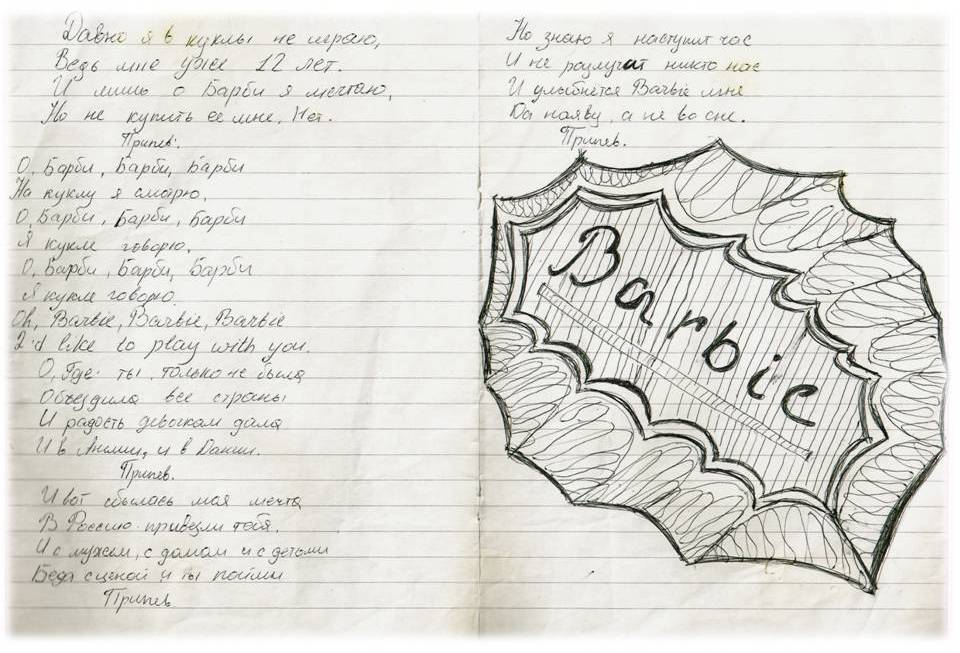 Давно я в куклы не играю,
Ведь мне уже 12 лет.
И лишь о Барби я мечтаю,
Но не купить ее мне, Нет.
Припев:
О, Барби, Барби, Барби
На куклу я смотрю,
О, Барби, Барби, Барби
Я кукле говорю,
О, Барби, Барби, Барби
Я кукле говорю
Oh, Barbie, Barbie, Barbie
I'd like to play with you.
О, Где ты только не была
Объездила все страны
И радость девочкам дала
И в Англии, и в Дании.
Припев.
И вот сбылась моя мечта
В Россию привезли тебя,
И с мужем, с домом и с детьми
Беда с ценой и ты пойми
Припев
Но знаю я наступит час
И не разлучат никто нас
И улыбнётся Barbie мне
Да наяву, а не во сне.
Припев.
Barbie